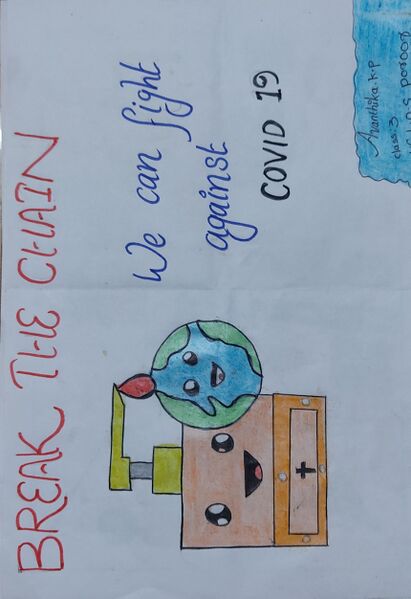 BREAK THE CHAIN
We can fight
against
COVID 19
Avanthika.K.P
class.3